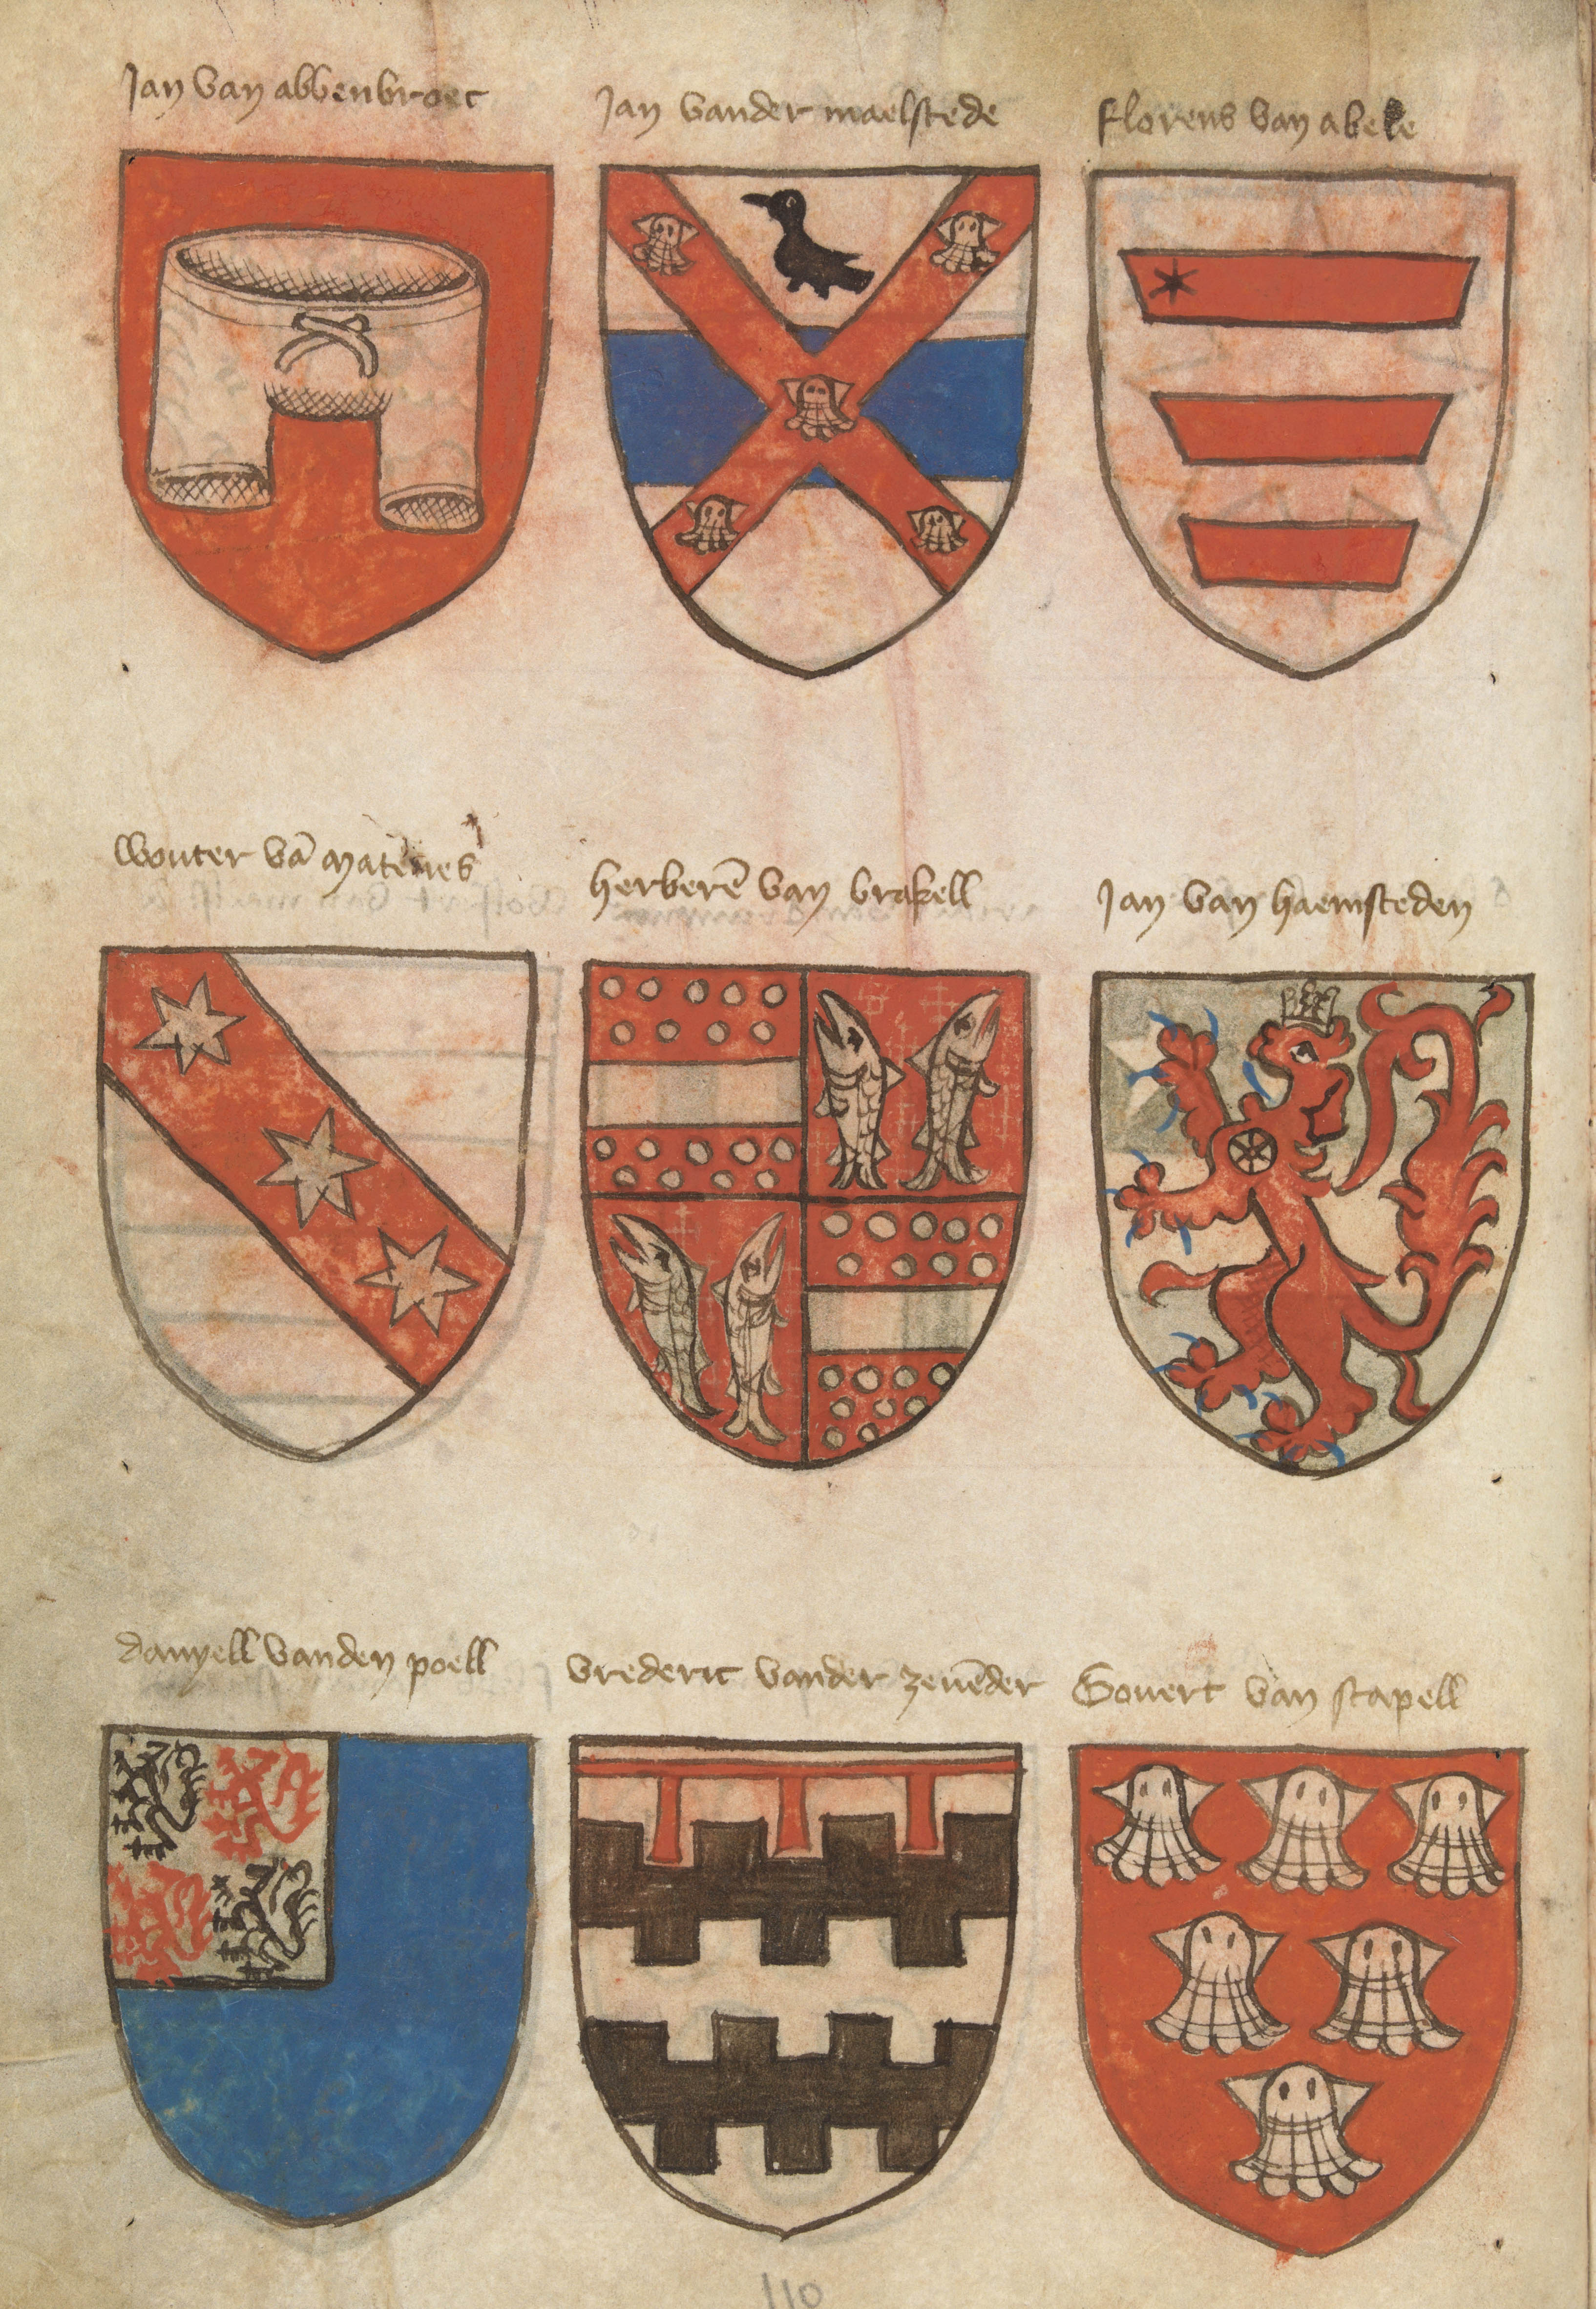 Jan van abbenbroec
Jan vander maelstede
florens van abele
wouter vā matenes
herberē van brakell
Jan van haemsteden
danyell vanden poell
vrederic vander zevēder
Govert van stapell
110